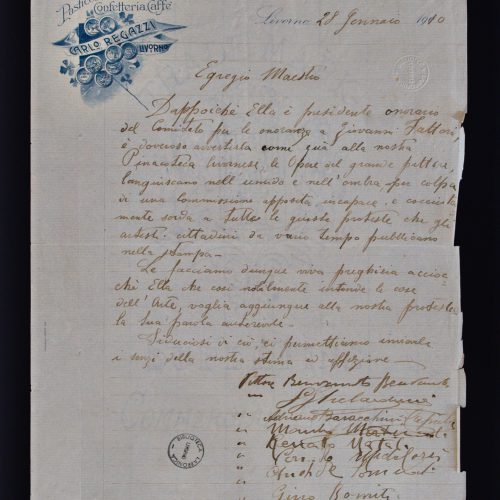 Pasticceria Confetteria Caffè
CARLO REGAZZI
LIVORNO
Livorno 28 Gennaio 1910
Egregio Maestro
Dappoichè Ella è presidente onorario
del Comitato per le onoranze a Giovanni Fattori,
è doveroso avvertirla come quà alla nostra
Pinacoteca livornese, le Opere del grande pittore,
languiscano nell'umido e nell'ombra per colpa
di una Commissione apposita, incapace, e cocciuta
mente sorda a tutte le giuste proteste che gli
artisti cittadini da vario tempo pubblicano
nella stampa.
Le facciamo dunque viva preghiera accioc
chè Ella che così nobilmente intende le cose
dell'Arte, voglia aggiungere alla nostra protesta
la Sua parola autorevole.
Fiduciosi di ciò, ci permettiamo inviarle
i sensi della nostra stima ed affezione
Pittore Benvenuto Benvenuti
" Adriano Baracchini Caputi
" Manlio Martinelli
" Renato Natali
"
"
" Gino Romiti
BIBLIOTECA LABRONICA